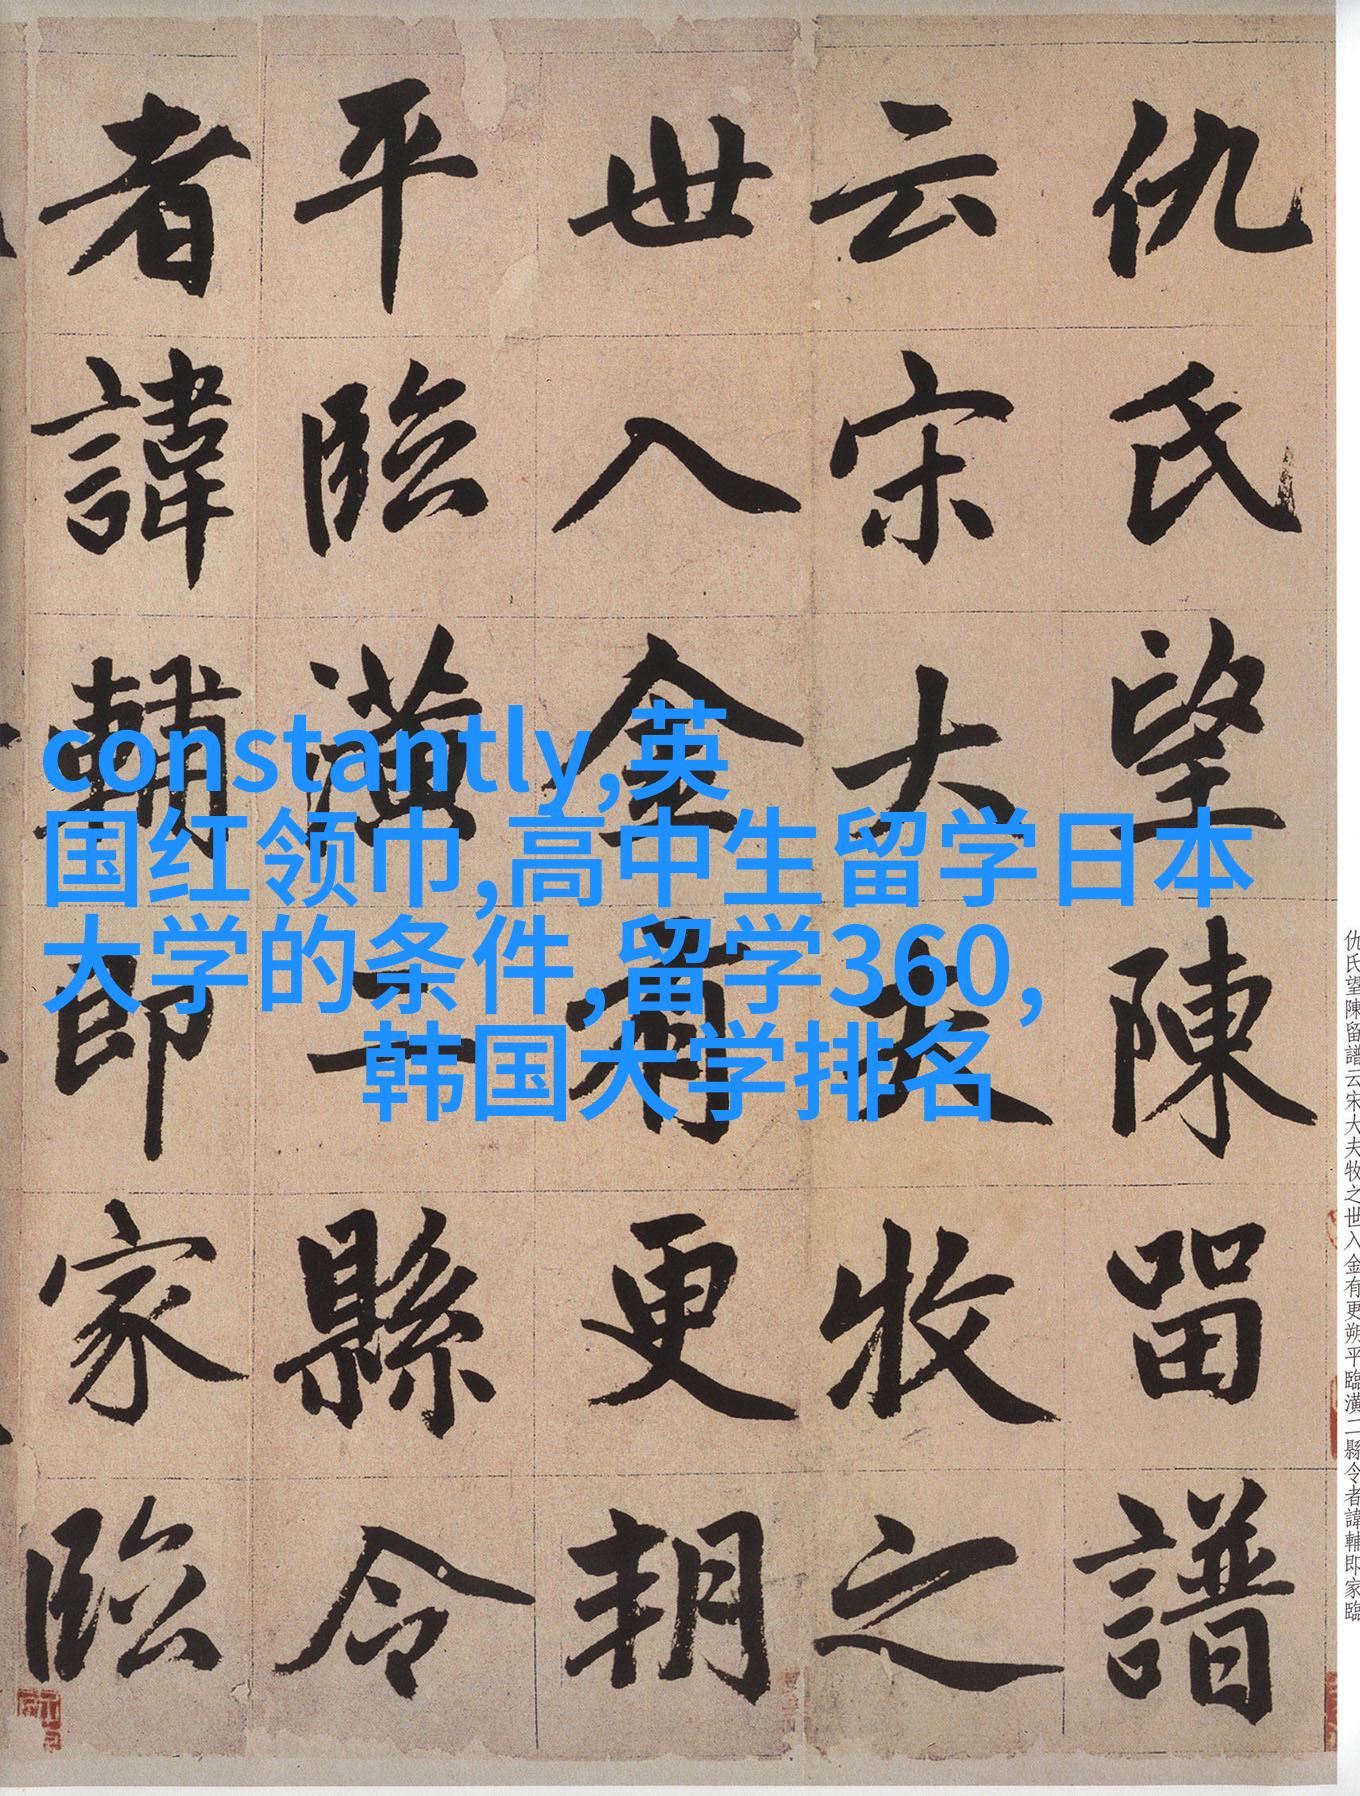 仇氏望陳留譜
云宋大夫牧之
世入金有更朔
平臨潢二縣令
者諱輔即家臨
constantly,英
国红领巾,高中生留学日本
大学的条件,留学360,
韩国大学排名
仇氏望陳留譜云宋大夫牧之世入金有更朔平臨潢二縣令者諱輔即家臨